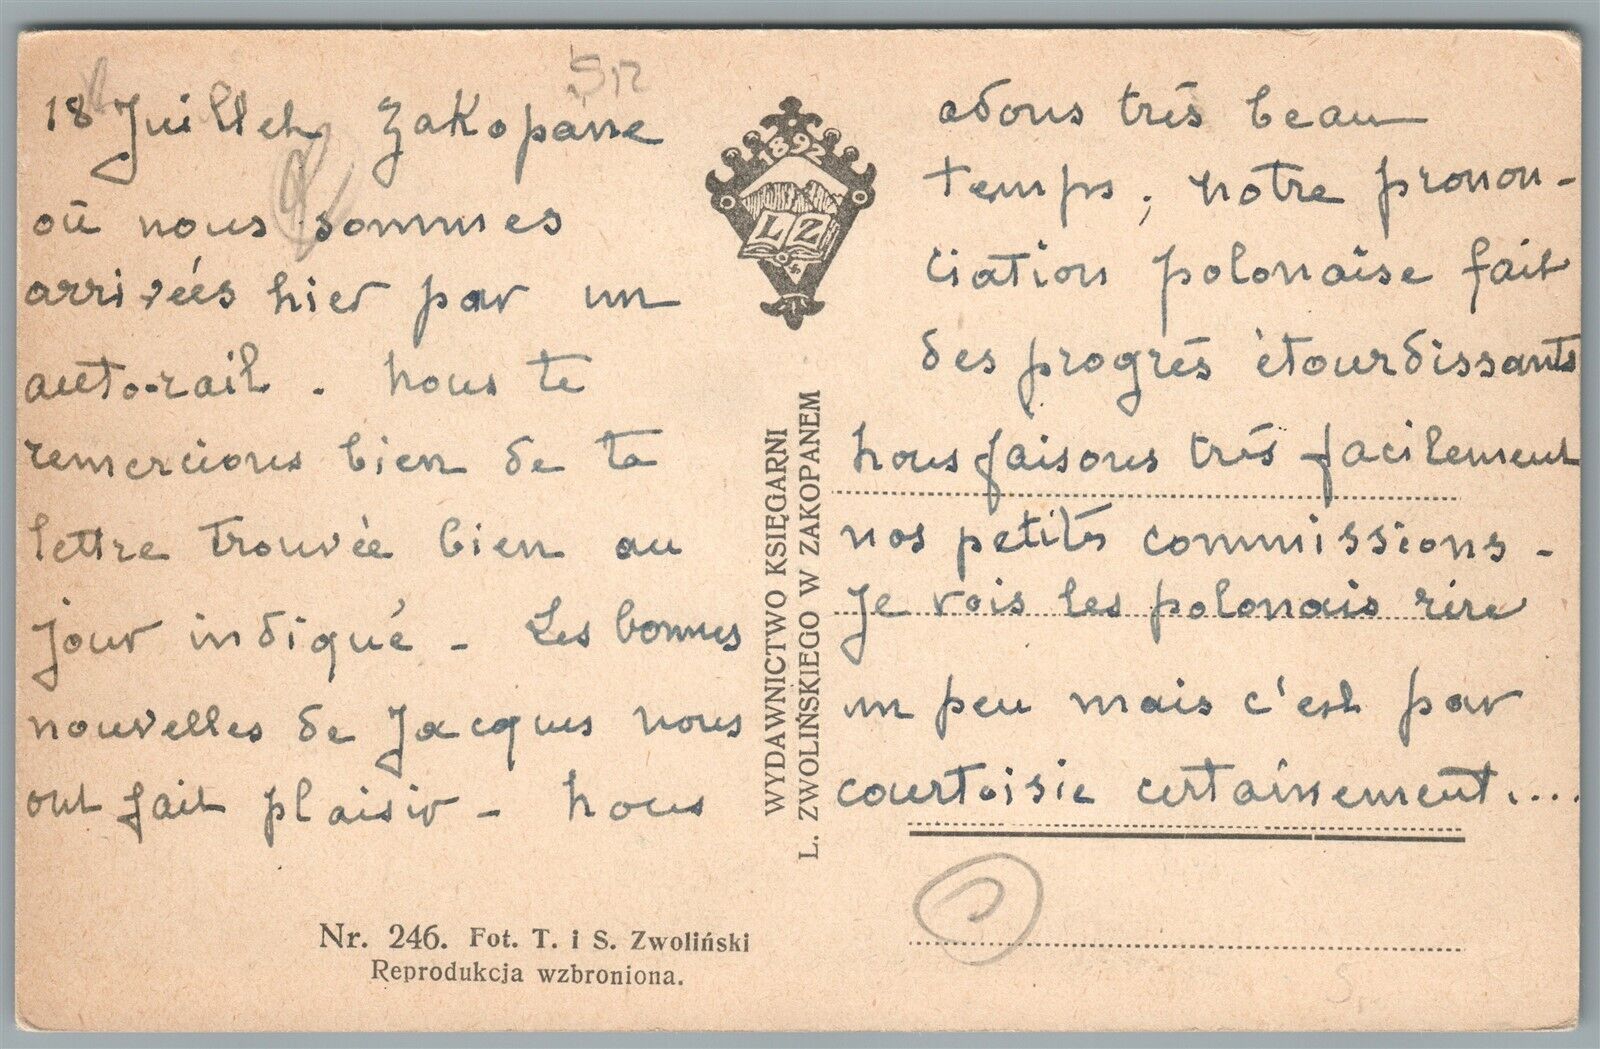 18 Juillet Zakopane
où nous sommes
arrivées hier par un
auto-rail. nous te
remercions bien de ta
lettre trouvée bien au
jour indiqué - Les bonnes
nouvelles de Jacques nous
ont fait plaisir - nous
avons très beau
temps, notre pronon-
ciation polonaise fait
des progrès étourdissants
nous faisons très facilement
nos petits commissions -
Je vois les polonais rire
un peu mais c'est par
courtoisie certainement....
1892
LZ
WYDAWNICTWO KSIĘGARNI
L. ZWOLIŃSKIEGO W ZAKOPANEM
Nr. 246. Fot. T. i S. Zwoliński
Reprodukcja wzbroniona.